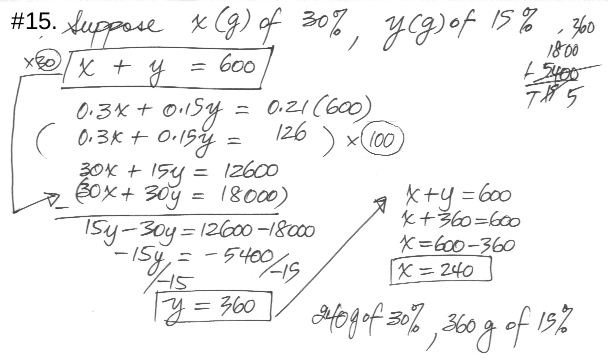 #15. Suppose x(g) of 30%, y(g) of 15%
x30 x + y = 600
0.3x + 0.15y = 0.21(600)
(0.3x + 0.15y = 126) x 100
30x + 15y = 12600
- (30x + 30y = 18000)
15y - 30y = 12600 - 18000
-15y = -5400
/-15 /-15
y = 360
x + y = 600
x + 360 = 600
x = 600 - 360
x = 240
240g of 30%, 360 g of 15%
360
1800
5400
5